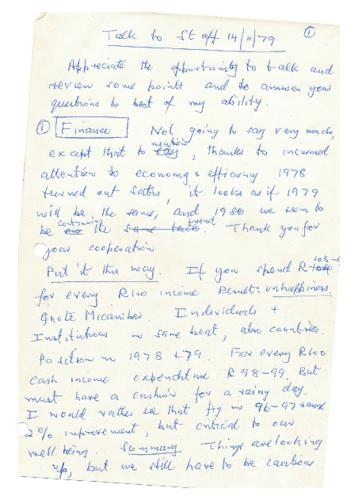 Talk to Staff 14/11/79 ①
Appreciate the opportunity to talk and
review some points and to answer your
questions to best of my ability.
① Finance Not going to say very much
mention
except that to say, thanks to increased
attention to economy & efficiency 1978
turned out satis, it looks as if 1979
will be the same, and 1980 we seem to
continuing trend
be the same. Thank you for
your cooperation
Put it this way. If you spend R
for every R100 income Result: unhappiness.
Quote Micawber. Individuals +
Institutions in same boat, also countries.
Position in 1978 & 79. For every R100
cash income expenditure R 98-99. But
must have a cushion for a rainy day.
I would rather see that fig in 96-97
2% improvement, but critical to our
well being. Summary Things are looking
up, but we still have to be cautious